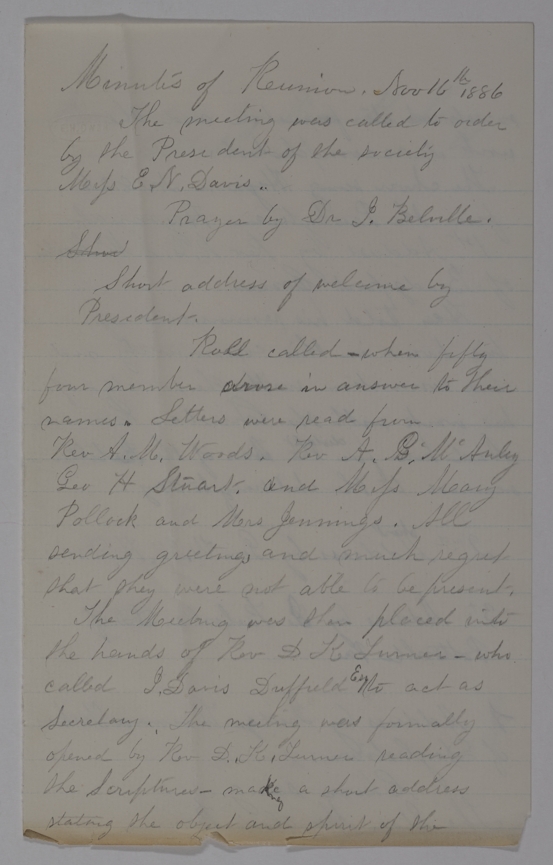 Minutes of Reunion. Nov 16th 1886
The meeting was called to order
by the President of the society
Miss E. N. Davis.
Prayer by Dr J. Belville.
Shor
Short address of welcome by
President.
Roll called - when fifty
four member arose in answer to their
names. Letters were read from
Rev A. M. Woods. Rev A. B. McAuley
Geo H Stuart. and Miss Mary
Pollock and Mrs Jennings. All
sending greeting, and much regret
that they were not able to be present.
The Meeting was then placed into
the hands of Rev D K Turner - who
called J. Davis Duffield Esq to act as
Secretary. The meeting was formally
opened by Rev D. K. Turner reading
the Scriptures - making a short address
stating the object and spirit of the